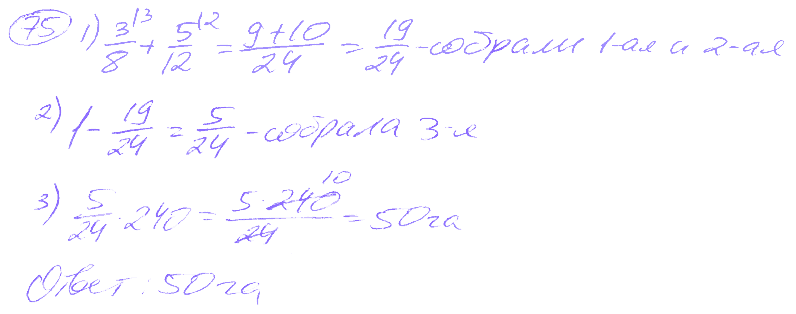 75 1) 3/8 \3 + 5/12 \2 = (9+10)/24 = 19/24 - собрали 1-ая и 2-ая
2) 1 - 19/24 = 5/24 - собрала 3-я
3) 5/24 · 240 = (5 · 240)/24 10 = 50 га
Ответ: 50 га